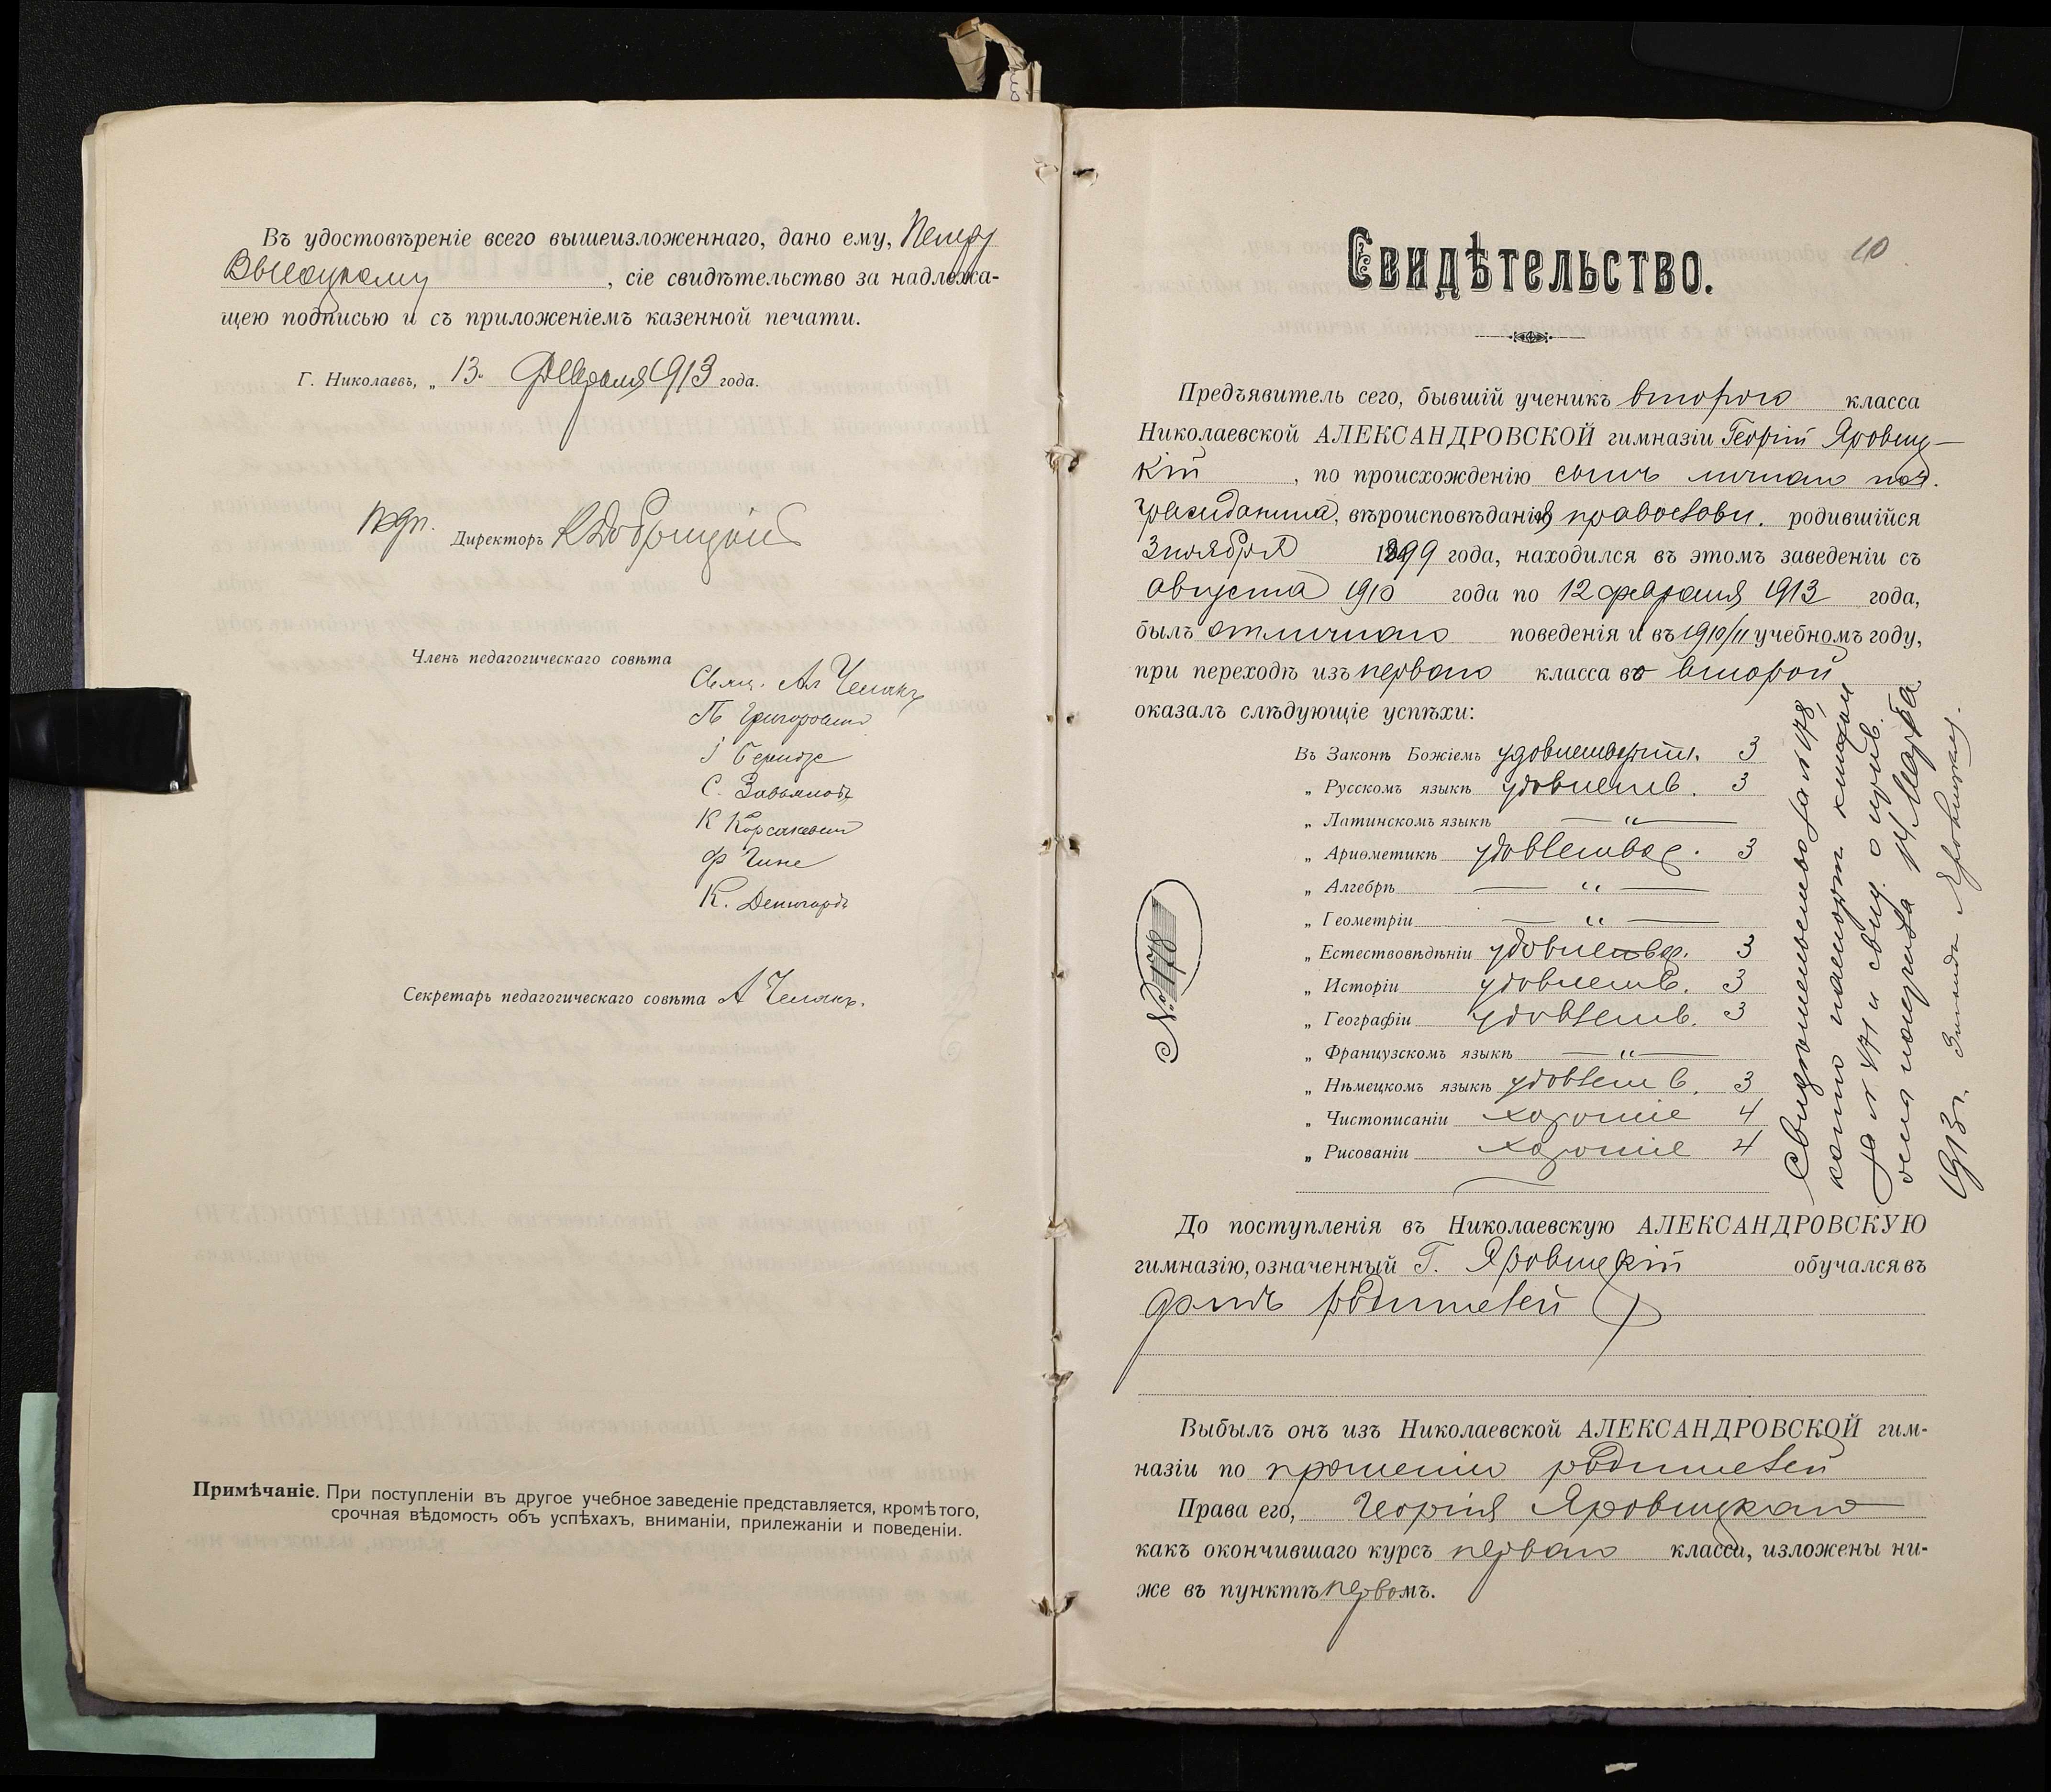 Въ удостовѣреніе всего вышеизложеннаго, дано ему, Петру
Высоцкому, сіе свидѣтельство за надлежа-
щею подписью и съ приложеніемъ казенной печати.
Г. Николаевъ, „ 13 „ Февраля 1913 года.
Подп. Директоръ К Добрицкій
Членъ педагогическаго совѣта
Свящ. Ал Чемякъ
П Григоровичъ
С. Завьяловъ
К Корсакевичъ
К.
Секретарь педагогическаго совѣта А Чемякъ.
Примѣчаніе. При поступленіи въ другое учебное заведеніе представляется, кромѣ того,
срочная вѣдомость объ успѣхахъ, вниманіи, прилежаніи и поведеніи.
10
Свидѣтельство.
Предъявитель сего, бывшій ученикъ второго класса
Николаевской АЛЕКСАНДРОВСКОЙ гимназіи Георгій Яровиц-
кій, по происхожденію сынъ личнаго поч.
гражданина, вѣроисповѣданія православн. родившійся
3 ноября 1899 года, находился въ этомъ заведеніи съ
августа 1910 года по 12 февраля 1913 года,
былъ отличнаго поведенія и въ 1910/11 учебномъ году,
при переходѣ изъ перваго класса во второй
оказалъ слѣдующіе успѣхи:
Въ Законѣ Божіемъ удовлетворит. 3
„ Русскомъ языкѣ удовлетв. 3
„ Латинскомъ языкѣ — „ —
„ Ариѳметикѣ удовлетвор. 3
„ Алгебрѣ — „ —
„ Геометріи — „ —
„ Естествовѣдѣніи удовлетвор. 3
„ Исторіи удовлетв. 3
„ Географіи удовлетв. 3
„ Французскомъ языкѣ — „ —
„ Нѣмецкомъ языкѣ удовлетв. 3
„ Чистописаніи хорошіе 4
„ Рисованіи хорошіе 4
№ 178
Свидѣтельство за № 178,
копію паспорт. книжки
за № 171 и свид. о прив.
оспы получила 14 Марта
1913 г. Зинаида Яровицкая.
До поступленія въ Николаевскую АЛЕКСАНДРОВСКУЮ
гимназію, означенный Г. Яровицкій обучался въ
домѣ родителей
Выбылъ онъ изъ Николаевской АЛЕКСАНДРОВСКОЙ гим-
назіи по прошенію родителей
Права его, Георгія Яровицкаго
какъ окончившаго курсъ перваго класса, изложены ни-
же въ пунктѣ первомъ.